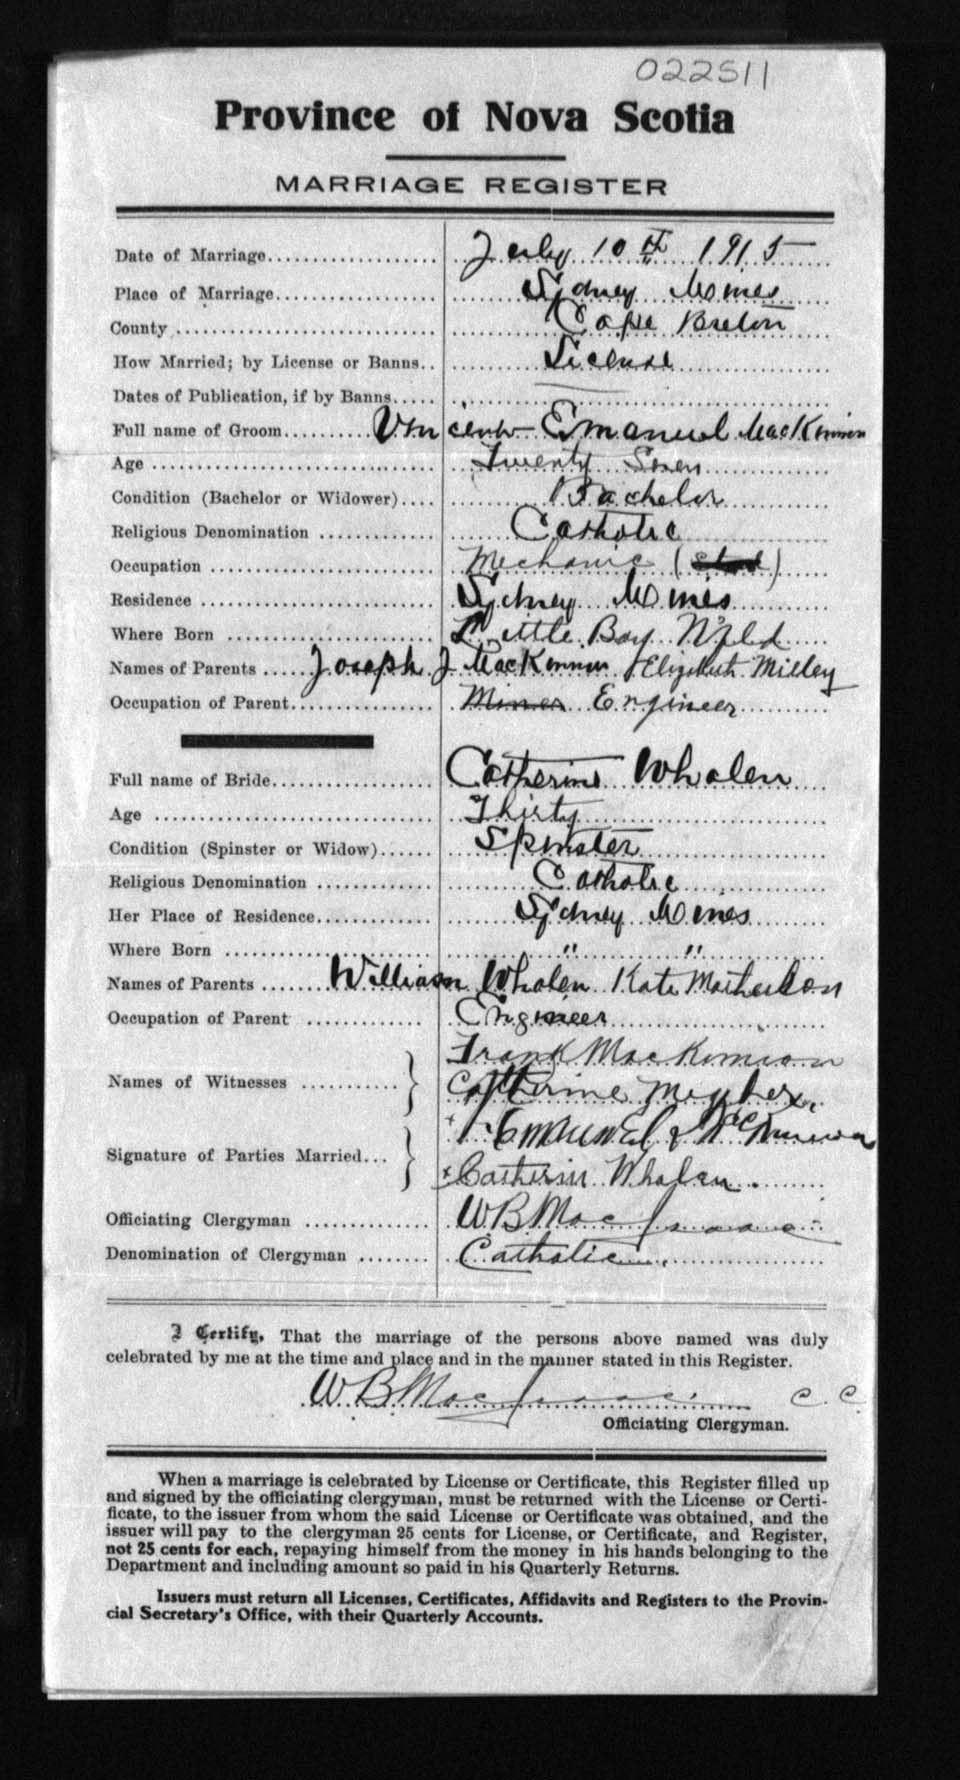 022511
Province of Nova Scotia
MARRIAGE REGISTER
Date of Marriage July 10th 1915
Place of Marriage Sydney Mines
County Cape Breton
How Married; by License or Banns License
Dates of Publication, if by Banns
Full name of Groom Vincent Emanuel MacKinnon
Age Twenty Seven
Condition (Bachelor or Widower) Bachelor
Religious Denomination Catholic
Occupation Mechanic ( )
Residence Sydney Mines
Where Born Little Bay N'fld
Names of Parents Joseph J MacKinnon / Elizabeth Milley
Occupation of Parent Miner Engineer
Full name of Bride Catherine Whalen
Age Thirty
Condition (Spinster or Widow) Spinster
Religious Denomination Catholic
Her Place of Residence Sydney Mines
Where Born " "
Names of Parents William Whalen Kate
Occupation of Parent Engineer
Frank MacKinnon
Names of Witnesses }
Catherine
x Emanuel
Signature of Parties Married... }
x Catherin Whalen.
Officiating Clergyman W B MacIsaac
Denomination of Clergyman Catholic.
I Certify, That the marriage of the persons above named was duly
celebrated by me at the time and place and in the manner stated in this Register.
W B MacIsaac C C
Officiating Clergyman.
When a marriage is celebrated by License or Certificate, this Register filled up
and signed by the officiating clergyman, must be returned with the License or Certi-
ficate, to the issuer from whom the said License or Certificate was obtained, and the
issuer will pay to the clergyman 25 cents for License, or Certificate, and Register,
not 25 cents for each, repaying himself from the money in his hands belonging to the
Department and including amount so paid in his Quarterly Returns.
Issuers must return all Licenses, Certificates, Affidavits and Registers to the Provin-
cial Secretary's Office, with their Quarterly Accounts.